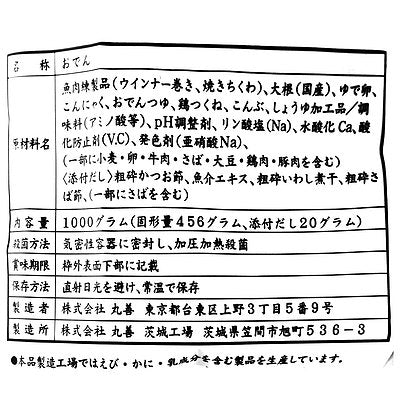 名 称 おでん
原材料名 魚肉練製品(ウインナー巻き、焼きちくわ)、大根(国産)、ゆで卵、
こんにゃく、おでんつゆ、鶏つくね、こんぶ、しょうゆ加工品/調
味料(アミノ酸等)、pH調整剤、リン酸塩(Na)、水酸化Ca、酸
化防止剤(V.C)、発色剤(亜硝酸Na)、
(一部に小麦・卵・牛肉・さば・大豆・鶏肉・豚肉を含む)
〈添付だし〉粗砕かつお節、魚介エキス、粗砕いわし煮干、粗砕さ
ば節、(一部にさばを含む)
内容量 1000グラム(固形量456グラム、添付だし20グラム)
殺菌方法 気密性容器に密封し、加圧加熱殺菌
賞味期限 枠外表面下部に記載
保存方法 直射日光を避け、常温で保存
製造者 株式会社 丸善 東京都台東区上野3丁目5番9号
製造所 株式会社 丸善 茨城工場 茨城県笠間市旭町536-3
●本品製造工場ではえび・かに・乳成分を含む製品を生産しています。